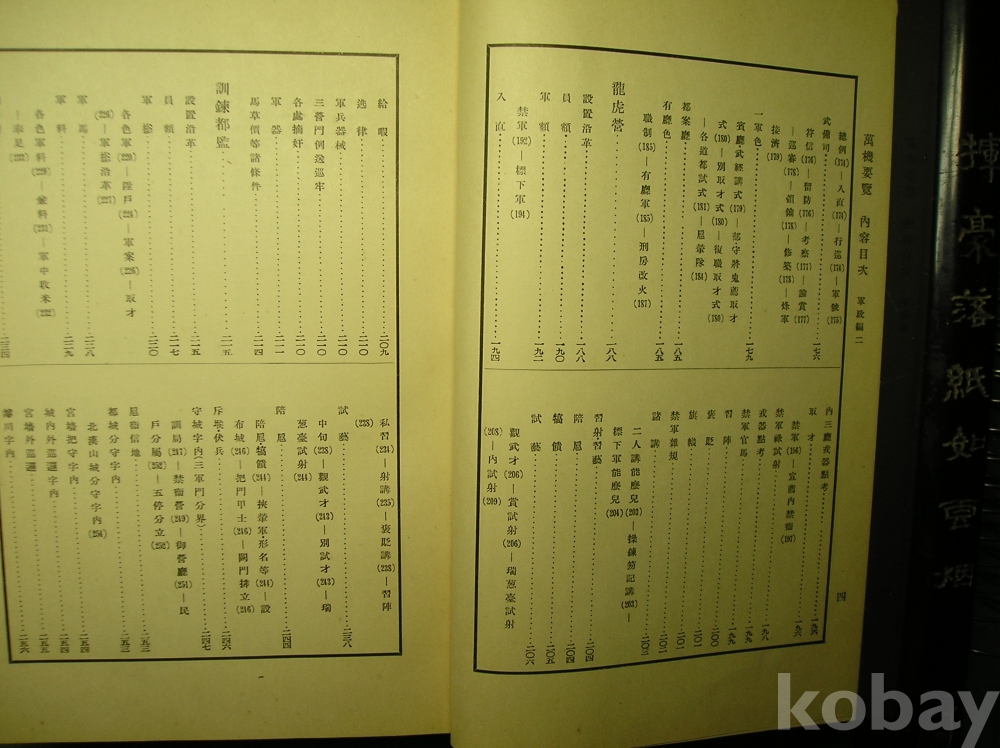 萬機要覽 內容目次 軍政編二
四
總例(174)—入直(174)—行巡(174)—軍號(175)
武備司………一七六
符信(176)—留防(176)—考察(177)—論賞(177)
—巡審(178)—領鑰(178)—修築(178)—烽軍
接濟(179)
一軍色………一七九
賓廳武經講式(179)—部·守將鬼薦取才
式(180)—別取才式(180)—復職取才式(180)
—各道都試式(181)—扈輦隊(184)
都案廳………一八五
有廳色………一八五
職制(185)—有廳軍(185)—刑房改火(187)
龍虎營………一八八
設置沿革………一八八
員額………一九〇
軍額………一九二
禁軍(192)—標下軍(194)
入直………一九四
內三廳戎器點考
取才………一九六
禁軍(196)—宣薦內禁衛(197)
禁軍祿試射………一九六
戎器點考………一九八
禁軍官馬………一九九
習陣………一九九
褒貶………二〇〇
旗幟………二〇一
禁軍雜規………二〇一
諸講………二〇三
二人講能麽兒(203)—操鍊笏記講(203)—
標下軍能麽兒(204)
習射習藝………二〇四
陪扈………二〇四
犒饋………二〇五
試藝………二〇六
觀武才(206)—賞試射(206)—瑞葱臺試射
(208)—內試射(209)
給暇………二〇九
進律………二一〇
軍兵器械………二一〇
三營門例逸巡牢………二一〇
各處摘奸………二一〇
軍器………二一一
馬草價等諸條件………二一四
訓鍊都監………二一五
設置沿革………二一五
員額………二一七
軍摠………二二〇
各色軍(220)—陞戶(224)—軍案(226)—取才
(226)—軍摠沿革(227)
軍馬………二二八
軍料………二二九
各色軍料(229)—釜料(231)—軍中收米(232)
私習陣(234)—射講(235)—褒貶講(238)—習陣
(238)
試藝………二三八
中旬(238)—觀武才(243)—別試才(243)—瑞
葱臺試射(244)
陪扈………二四四
陪扈·犒饋(244)—挾輦軍·形名等(244)—設
布城(246)—把門甲士(246)—闕門排立(246)
斥堠伏兵………二四六
守城字內(三軍門分界)………二四七
訓局(247)—禁衛營(249)—御營廳(251)—民
戶分屬(252)—五停分立(252)
扈衛信地………二五三
都城分守字內………二五三
北漢山城分守字內(254)
宮墻把守字內………二五四
城內外巡邏字內………二五五
宮墻外巡邏………二五六
濬川字內
揮毫落紙如雲烟
kobay